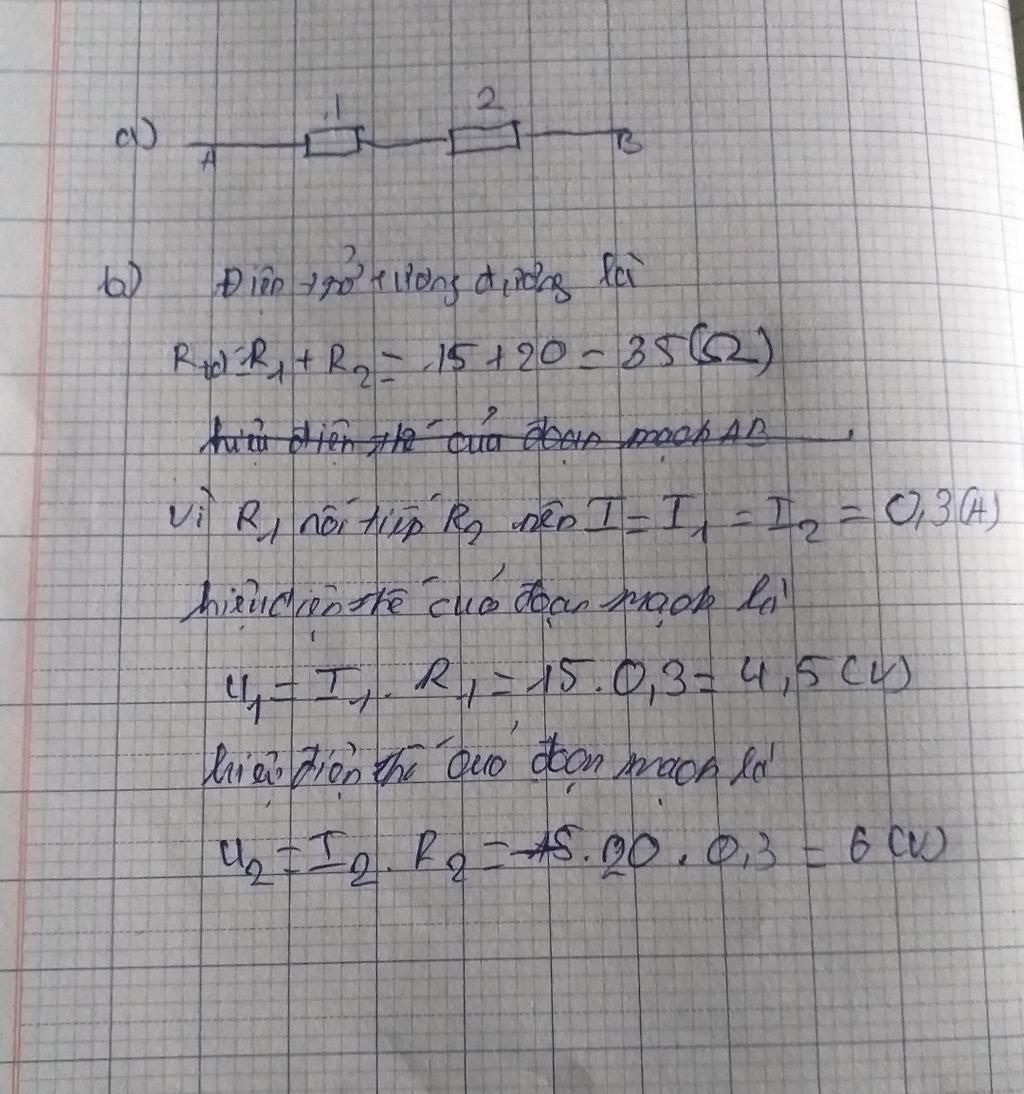 1 2
a) A B
b) Điện trở tương đương là
Rtđ = R1 + R2 = 15 + 20 = 35 (Ω)
hiệu điện thế của đoạn mạch AB
Vì R1 nối tiếp R2 nên I = I1 = I2 = 0,3 (A)
hiệu điện thế của đoạn mạch là
U1 = I1. R1 = 15 . 0,3 = 4,5 (V)
hiệu điện thế của đoạn mạch là
U2 = I2. R2 = 15. 20 . 0,3 = 6 (V)